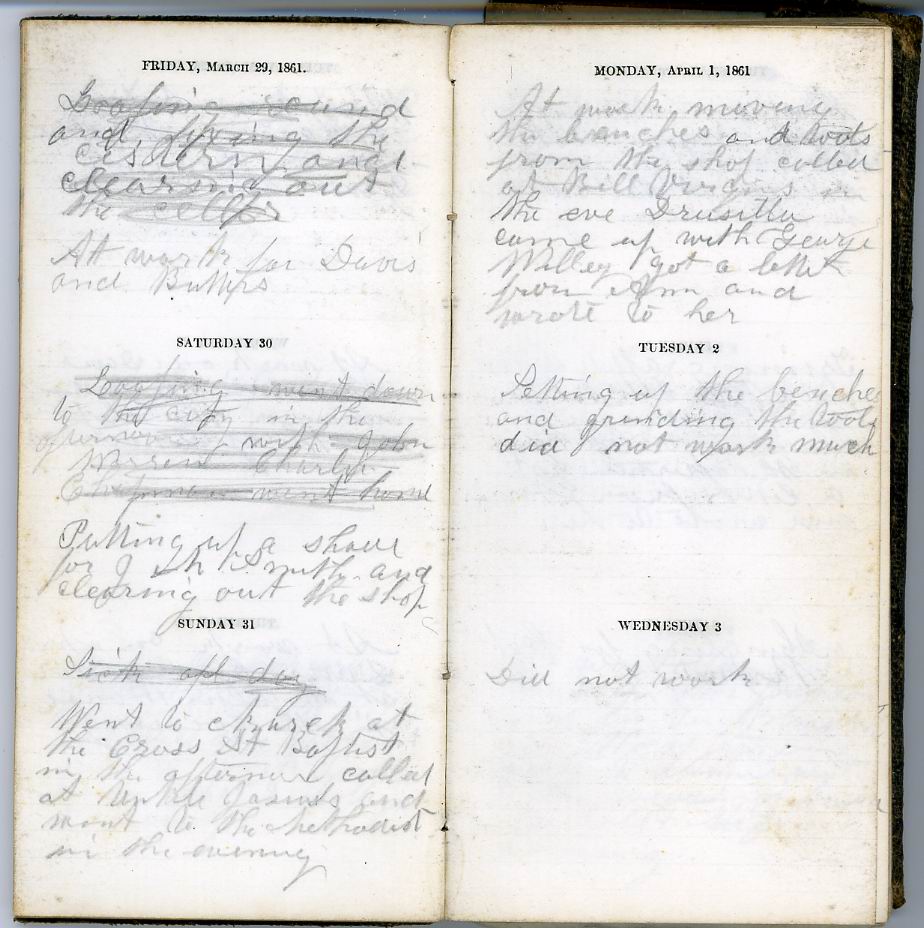 FRIDAY, MARCH 29, 1861.
Loafing round
and fixing the
cistern and
clearing out
the cellar
At work for Davis
and Butlers
SATURDAY 30
Loafing went down
to the city in the
afternoon with John
Charlie
Chapman went home
Putting up a shade
for J Smith and
clearing out the shop
SUNDAY 31
Sick all day
Went to church at
the Cross St Baptist
in the afternoon called
at Unkle and
went to the Methodist
in the evening
MONDAY, APRIL 1, 1861
At work moving
the benches and tools
from the shop called
at Bill Virgins in
the eve Drusilla
came up with George
Willey got a lettr
from Ann and
wrote to her
TUESDAY 2
Setting up the benche
and grinding the tools
did not work much
WEDNESDAY 3
Did not work